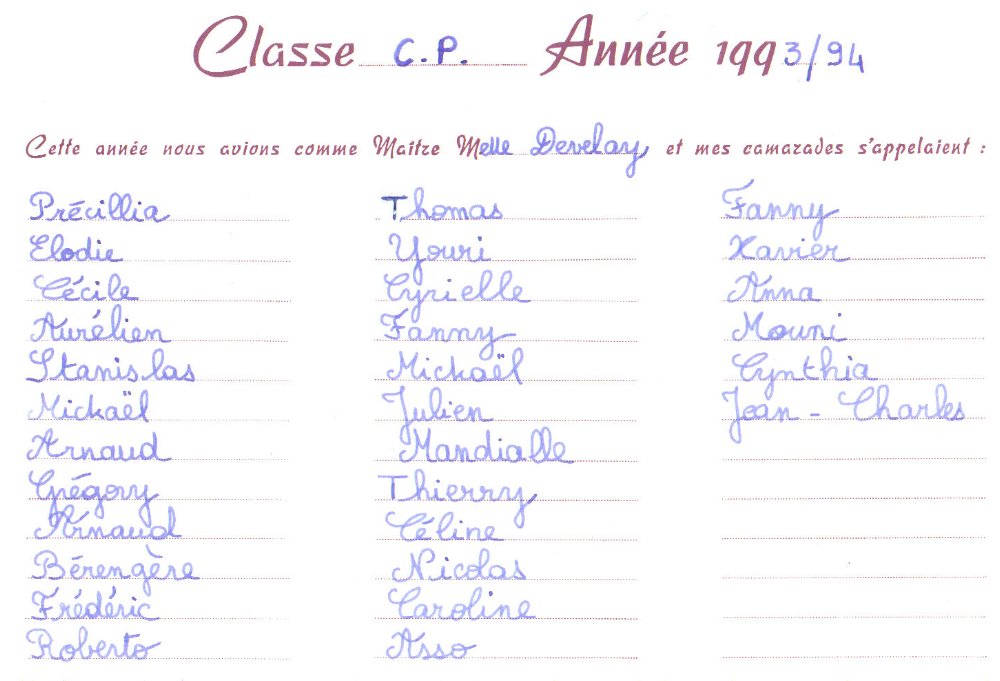 Classe C.P. Année 1993/94
Cette année nous avions comme Maître Melle Develay et mes camarades s'appelaient :
Précillia
Elodie
Cécile
Aurélien
Stanislas
Mickaël
Arnaud
Grégory
Arnaud
Bérengère
Frédéric
Roberto
Thomas
Youri
Cyrielle
Fanny
Mickaël
Julien
Mandialle
Thierry
Céline
Nicolas
Caroline
Asso
Fanny
Xavier
Anna
Mouni
Cynthia
Jean - Charles